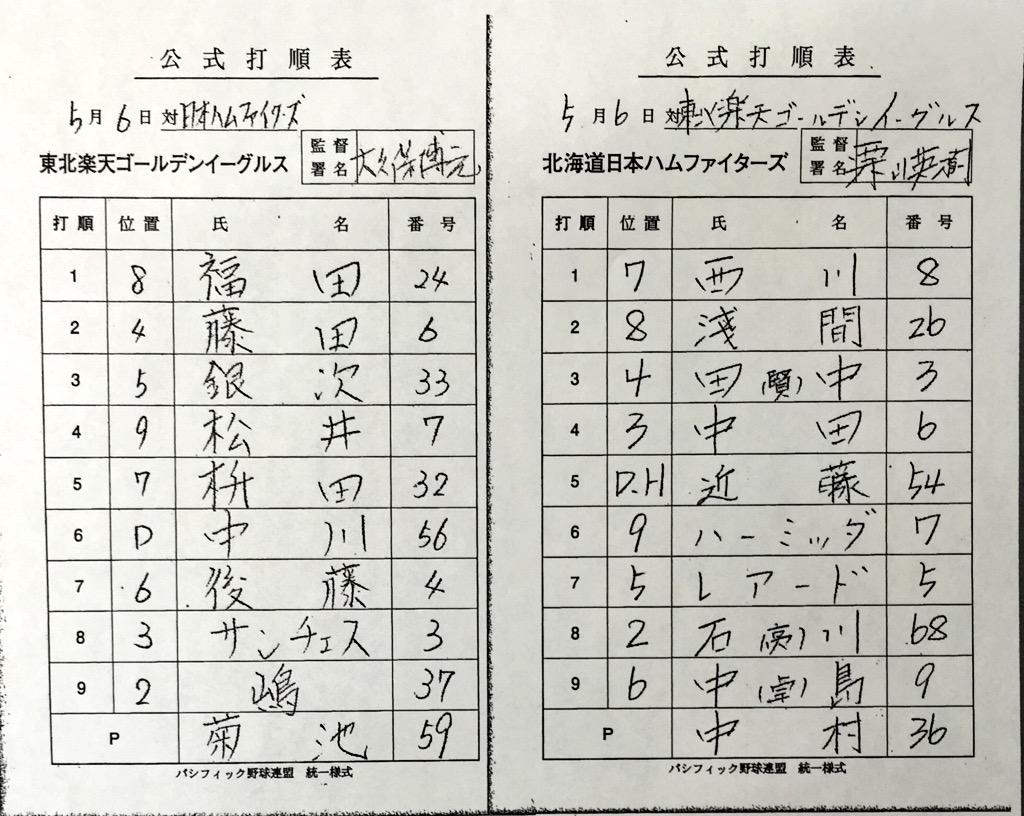 公式打順表
5月6日 対日本ハムファイターズ
東北楽天ゴールデンイーグルス 監督署名 大久保博元
打順 位置 氏名 番号
1 8 福田 24
2 4 藤田 6
3 5 銀次 33
4 9 松井 7
5 7 枡田 32
6 D 中川 56
7 6 後藤 4
8 3 サンチェス 3
9 2 嶋 37
P 菊池 59
パシフィック野球連盟 統一様式
公式打順表
5月6日 対東北楽天ゴールデンイーグルス
北海道日本ハムファイターズ 監督署名 栗山英樹
打順 位置 氏名 番号
1 7 西川 8
2 8 淺間 26
3 4 田(賢)中 3
4 3 中田 6
5 D.H 近藤 54
6 9 ハーミッダ 7
7 5 レアード 5
8 2 石(亮)川 68
9 6 中(卓)島 9
P 中村 36
パシフィック野球連盟 統一様式